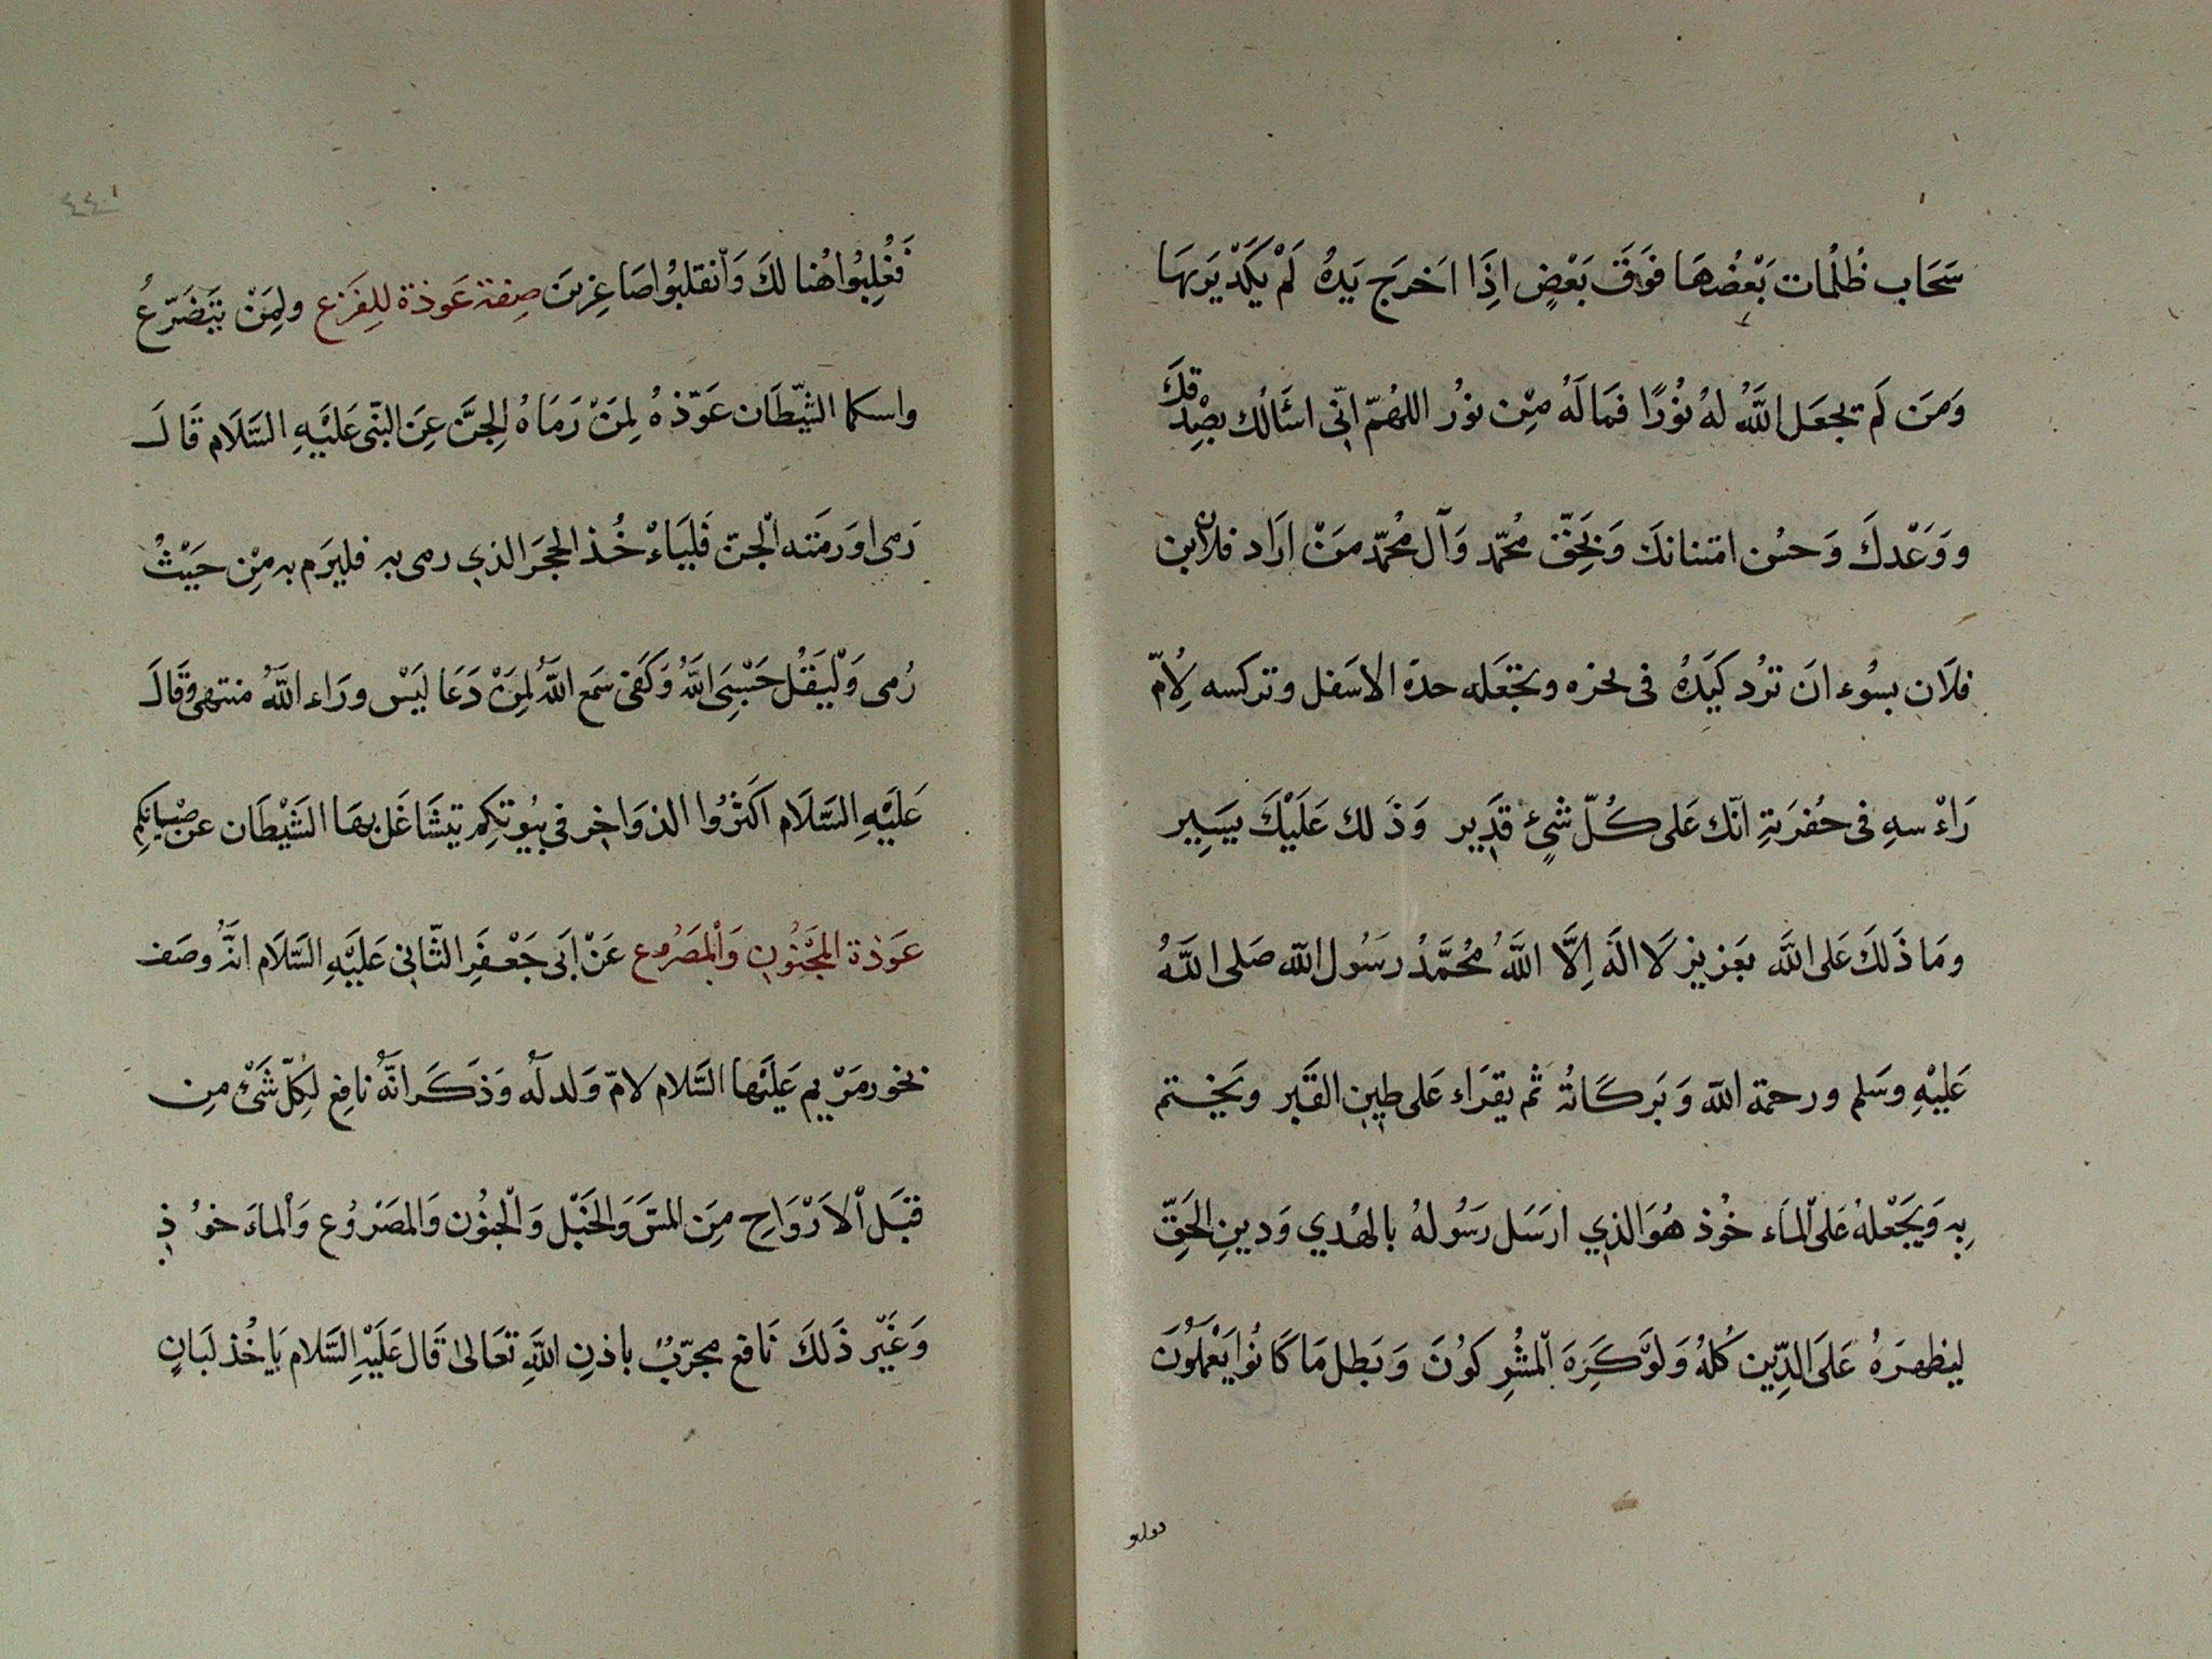 سَحَاب ظُلُمات بَعْضُهَا فَوَقَ بَعْضٍ اِذَا اَخرَج يَدهُ لَمْ يَكَدْ يَرىهَا
وَمَن لَم يجعَل اللّٰهُ لهُ نوُرًا فمَالَهُ مِن نوُر اللهُمّ انّى اسْئَالُك بصِدقك
ووَعْدكَ وَحسُن امتنانكَ وَبحَقّ محُمّد وَآل محُمّد مَنْ ارَاد فلان بن
فلَان بسوُء انَ ترُد كَيَدهُ فى نحره وتجعَله حدهُ الاسَفل وتركسه لاِمّ
رَاءْسهِ فى حفُرَتهِ انّك عَلى كُلّ شىٍءْ قدَير وَذَ لك عَلَيْكَ يسَيِر
ومَا ذَلكَ عَلى اللّٰهَ بعَزيز لَا الهَ اِلَّا اللّٰهُ محُمَّدُ رسَوُل اللّٰه صَلى اللّٰهُ
عَليْهِ وسَلم ورحمة اللّٰه وَبَركَاتهُ ثم يقرَاء عَلى طين القَبر وَيختم
بِه وَيَجْعَلهُ عَلى الْمَاء خوُذ هُوَ الذي ارسَل رَسُولهُ بالهُدي وَدينِ الحَقّ
ليظهرَهُ عَلَى الدِّين كُلهُ وَلَوْ كَرِهَ المُشْرِكوُنَ وَبَطل مَا كَانوُا يَعْمَلوُنَ
فَغُلِبُوا هُنالكَ وَانقلبوُا صَاغِرينَ صِفة عَوذة للِفَزع ولِمَنْ يتَضَرّعُ
واسكما الشّيطَان عَوّذهُ لِمَنْ رَمَاهُ الِجَنَّ عَنِ النّبى عَليْهِ السَّلَام قَالَ
رَمى اورَمَته الْجنّ فَليَاءْخُذ الحجَر الذي رمى به فليرَم به مِن حَيْثُ
رُمى وَلْيَقُل حَسْبِىَ اللّٰهُ وَكَفَى سَمع اللّٰهُ لِمَنْ دَعَا ليَسْ ورَاء اللّٰهُ منتهى وقَالَ
عَليْهِ السَّلَام اكَثرُوا الدوَاخِر فى بيُوتكِم تيشَاغَل بهَا الشَيْطَان عن صْبيانكِم
عَوَذة المَجنُونِ وَالمصَرُوع عَنْ ابَى جَعْفَرِ الثّانىِ عَليَهِ السَّلَام انَّهُ وصَف
بخور مَرْيم عَليَها السَّلام لامّ وَلد لهُ وَذكَر انّهُ نافِع لكِلّ شَىْءْ مِن
قبَل الْارْوَاحِ مِنَ المسّ وَالخبْل وَالجنُون وَالمصَروُع وَالماءَ خوُذ
وَغَيْر ذَلكَ نَافع مجرّبُ باذنِ اللّٰهِ تعَالىٰ قَال عَلَيْهِ السَّلام يَاخُذ لبَانٍ